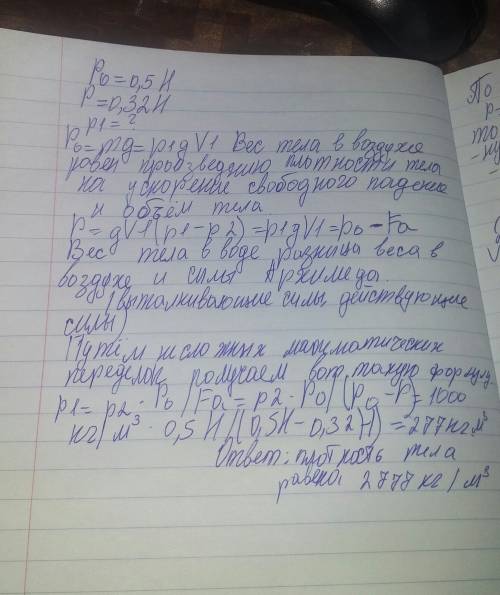 P₀ = 0,5 Н
P = 0,32 Н
p1 = ?
P₀ = mg = p1gV1 Вес тела в воздухе
равен произведению плотности тела
на ускорение свободного падения
и объём тела
P = gV1(p1-p2) = p1gV1 = p₀ - Fa
Вес тела в воде разница веса в
воздухе и силы Архимеда.
(выталкивающие силы действующие
силы)
Путём несложных математических
переделок получаем вот такую формулу
p1 = p2 · P₀ / Fa = p2 · P₀ / (P₀ - P) = 1000
кг/м³ · 0,5 Н / (0,5Н - 0,32 Н) = 277 кг м³
Ответ: плотность тела
равена 2777 кг / м³
По
p=